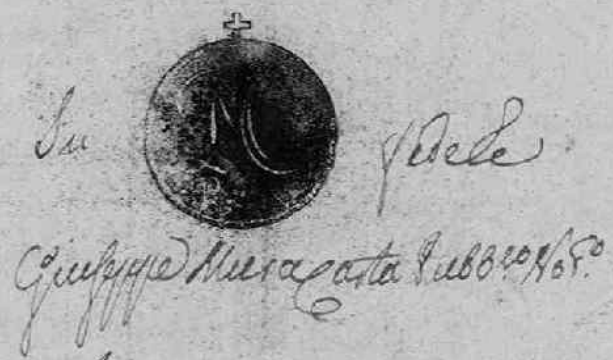 In MC fede
Giuseppe Mura Carta Pubb.co Not.o